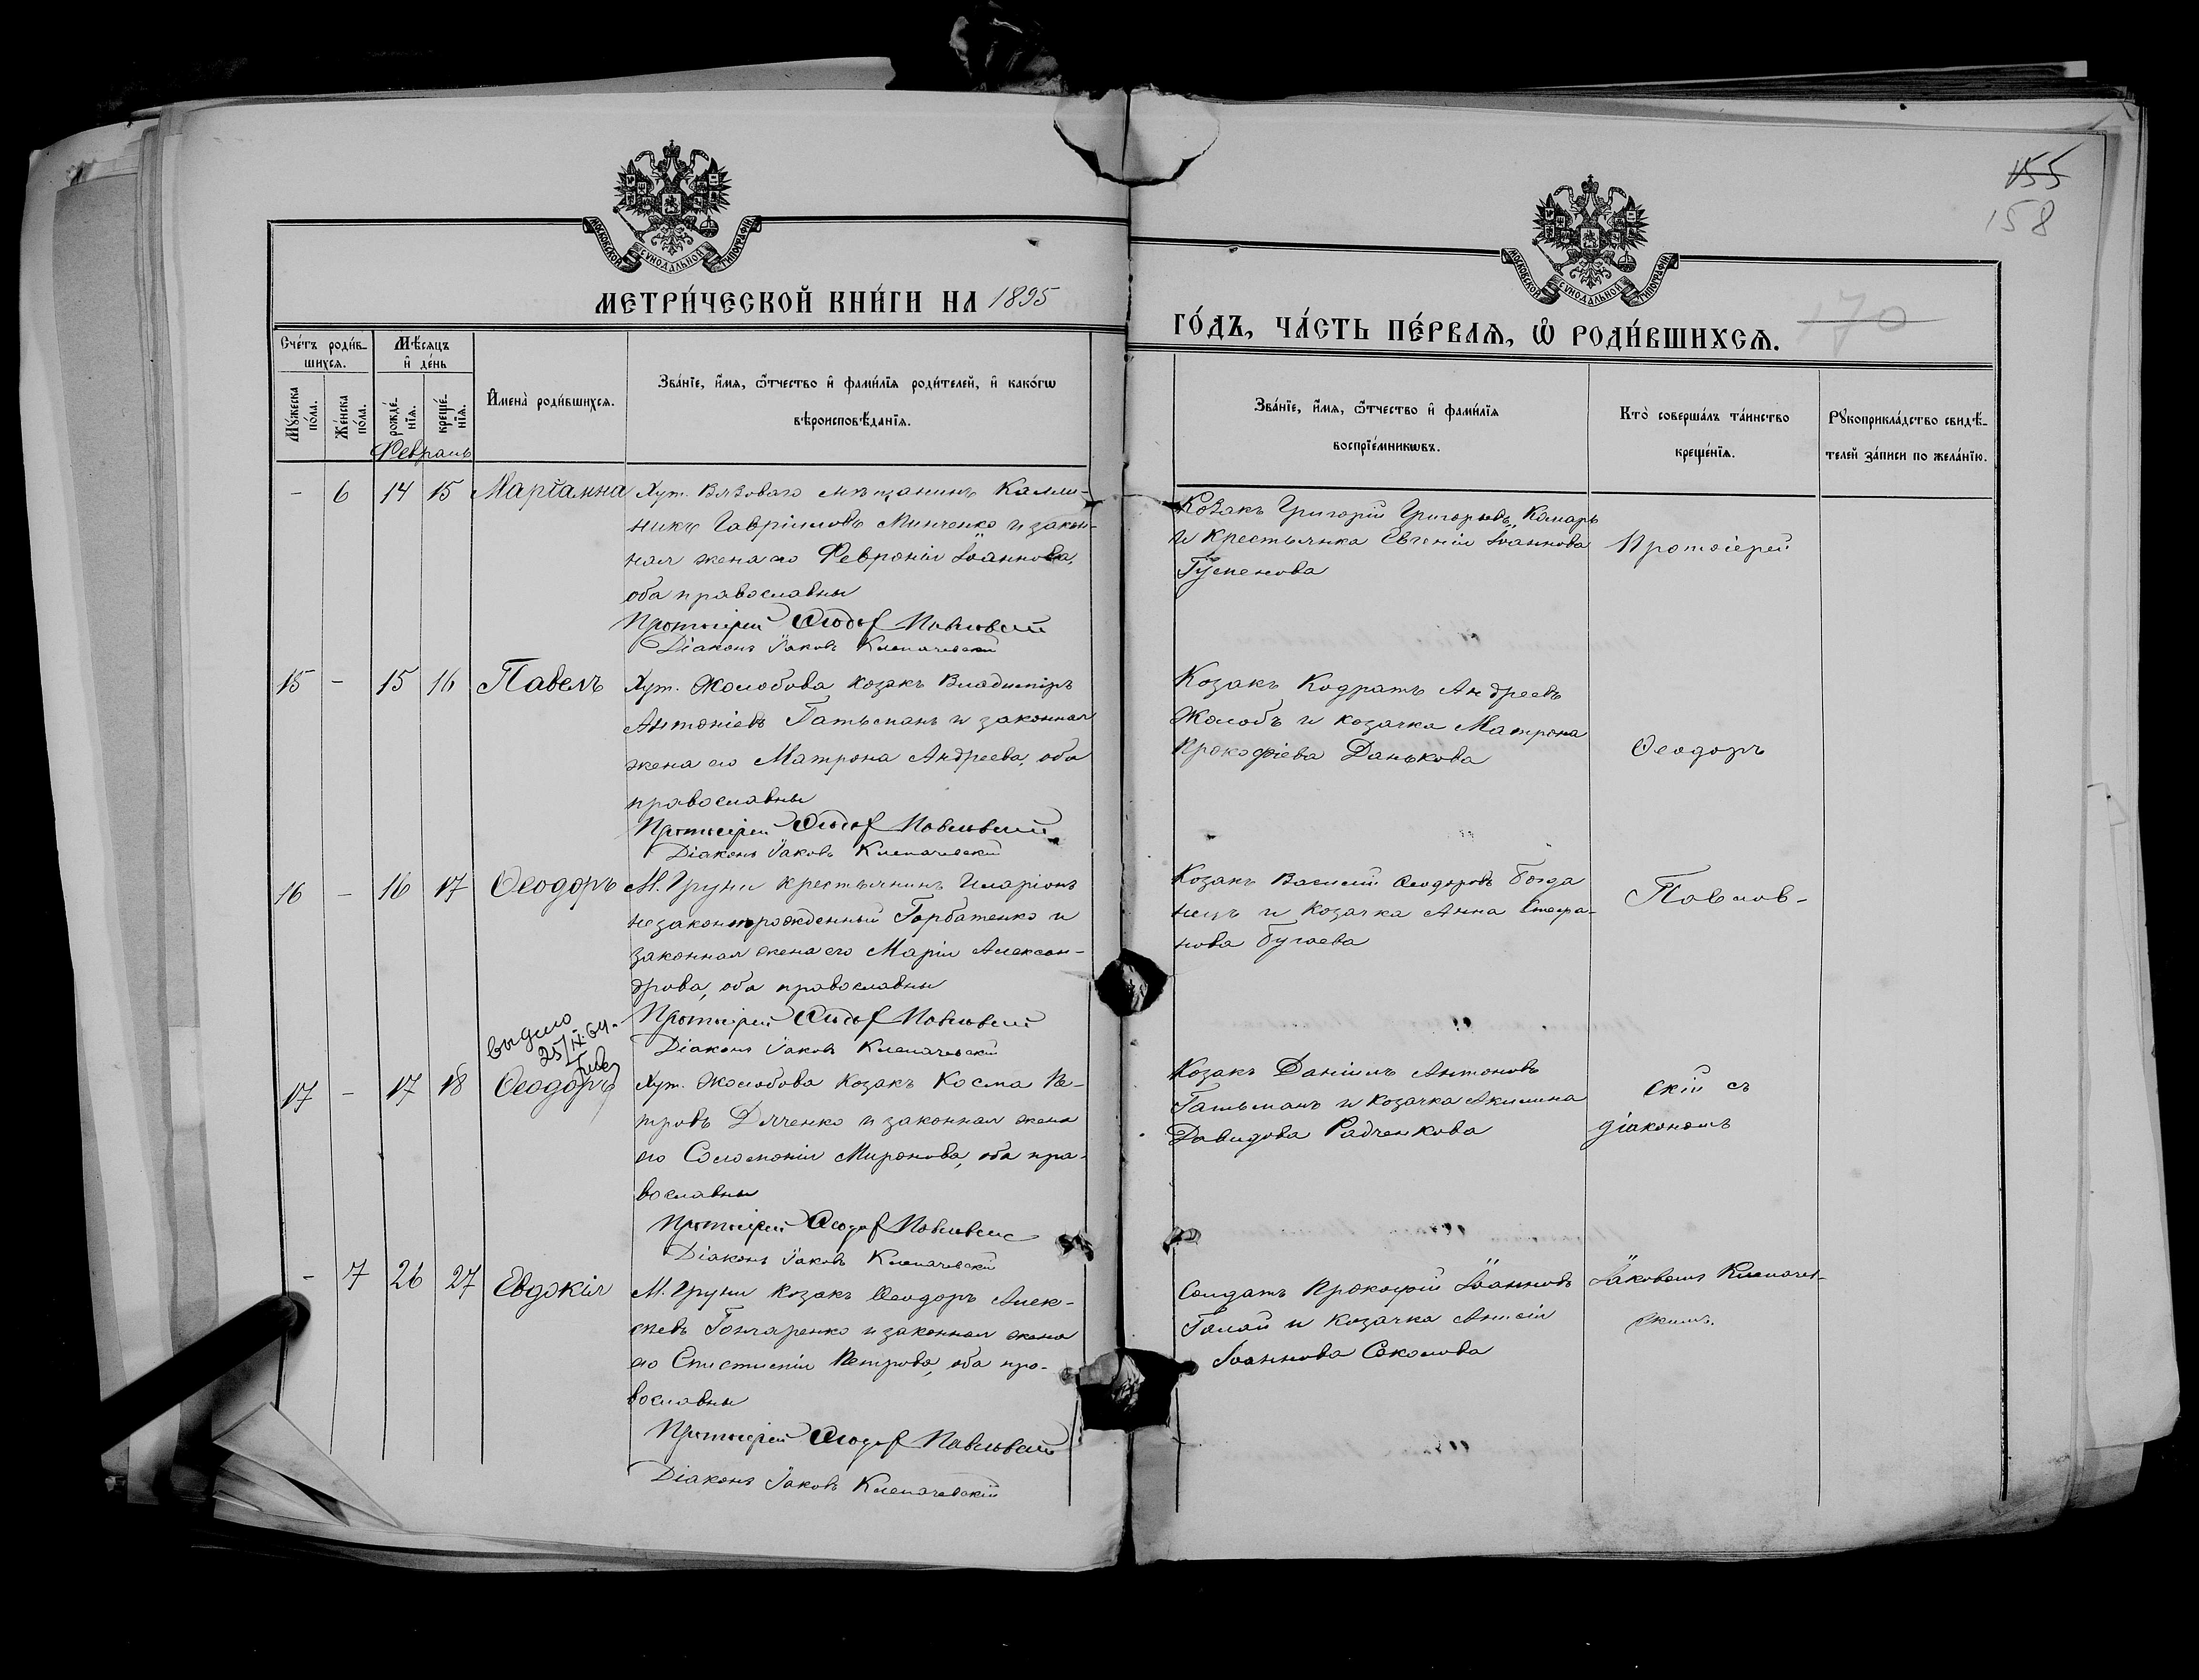 155
158
170
МОСКОВСКОЙ СѴНОДАЛЬНОЙ ТИПОГРАФІИ
МОСКОВСКОЙ СѴНОДАЛЬНОЙ ТИПОГРАФІИ
МЕТРИ́ЧЕСКОЙ КНИ́ГИ НА 1895
ГО́ДЪ, ЧА́СТЬ ПЕ́РВАѦ, Ѡ҆ РОДИ́ВШИХСѦ.
Сче́тъ роди́в-
шихсѧ.
Мѣ́сяцъ
и҆ де́нь
Мꙋжеска
по́ла.
Же́нска
по́ла.
рожде́-
нїѧ.
креще́-
нїѧ.
Февраль
И҆мена̀ роди́вшихсѧ.
Зва́нїе, и҆́мѧ, ѻ҆́тчество и҆ фами́лїѧ роди́телей, и҆ како́гѡ
вѣроисповѣ́данїѧ.
Зва́нїе, и҆́мѧ, ѻ҆́тчество и҆ фами́лїѧ
воспрїе́мникѡвъ.
Кто̀ соверша́лъ та́инство
креще́нїѧ.
Рꙋкоприкла́дство свидѣ́-
телей за́писи по жела́нїю.
- 6 14 15 Маріанна
Хут. Вязоваго мѣщанинъ Калли-
никъ Гавріиловъ Минченко и закон-
ная жена его Февронія Іоаннова,
оба православны
Протоіерей Ѳеодоръ Павловскій
Діаконъ Іаковъ Клепачевскій
Козакъ Григорій Григорьевъ Комаръ
и Крестьянка Евгенія Іоаннова
Протоіерей
15 - 15 16 Павелъ
Хут. Жолобова козакъ Владиміръ
Антоніевъ Гатьманъ и законная
жена его Матрона Андреева, оба
православны
Протоіерей Ѳеодоръ Павловскій
Діаконъ Іаковъ Клепачевскій
Козакъ Кодратъ Андреевъ
Жолобъ и козачка Матрона
Прокофіева Данькова
Ѳеодоръ
16 - 16 17 Ѳеодоръ
М. Груни крестьянинъ Иларіонъ
незаконнорожденный Горбатенко и
законная жена его Марія Алексан-
дрова, оба православны
Протоіерей Ѳеодоръ Павловскій
Діаконъ Іаковъ Клепачевскій
Козакъ Василій Ѳеодоровъ Богда
нецъ и Козачка Анна Стефа-
нова Бугаева
Павлов-
выдано
25/IX 64.
17 - 17 18 Ѳеодоръ
Хут. Жолобова Козакъ Косма Пе-
тровъ Дяченко и законная жена
его Соломонія Миронова, оба пра-
вославны
Протоіерей Ѳеодоръ Павловскій
Діаконъ Іаковъ Клепачевскій
Козакъ Даніилъ Антоновъ
Гатьманъ и Козачка Акилина
Давидова Радченкова
скій съ
діакономъ
- 7 26 27 Евдокія
М. Груни Козакъ Ѳеодоръ Алек-
сѣевъ Гончаренко и законная жена
его Епистимія Петрова, оба пра-
вославны
Протоіерей Ѳеодоръ Павловскій
Діаконъ Іаковъ Клепачевскій
Солдатъ Прокофій Іоанновъ
Галай и Козачка
Іоаннова Соколова
Іаковомъ Клепачев-
скимъ.